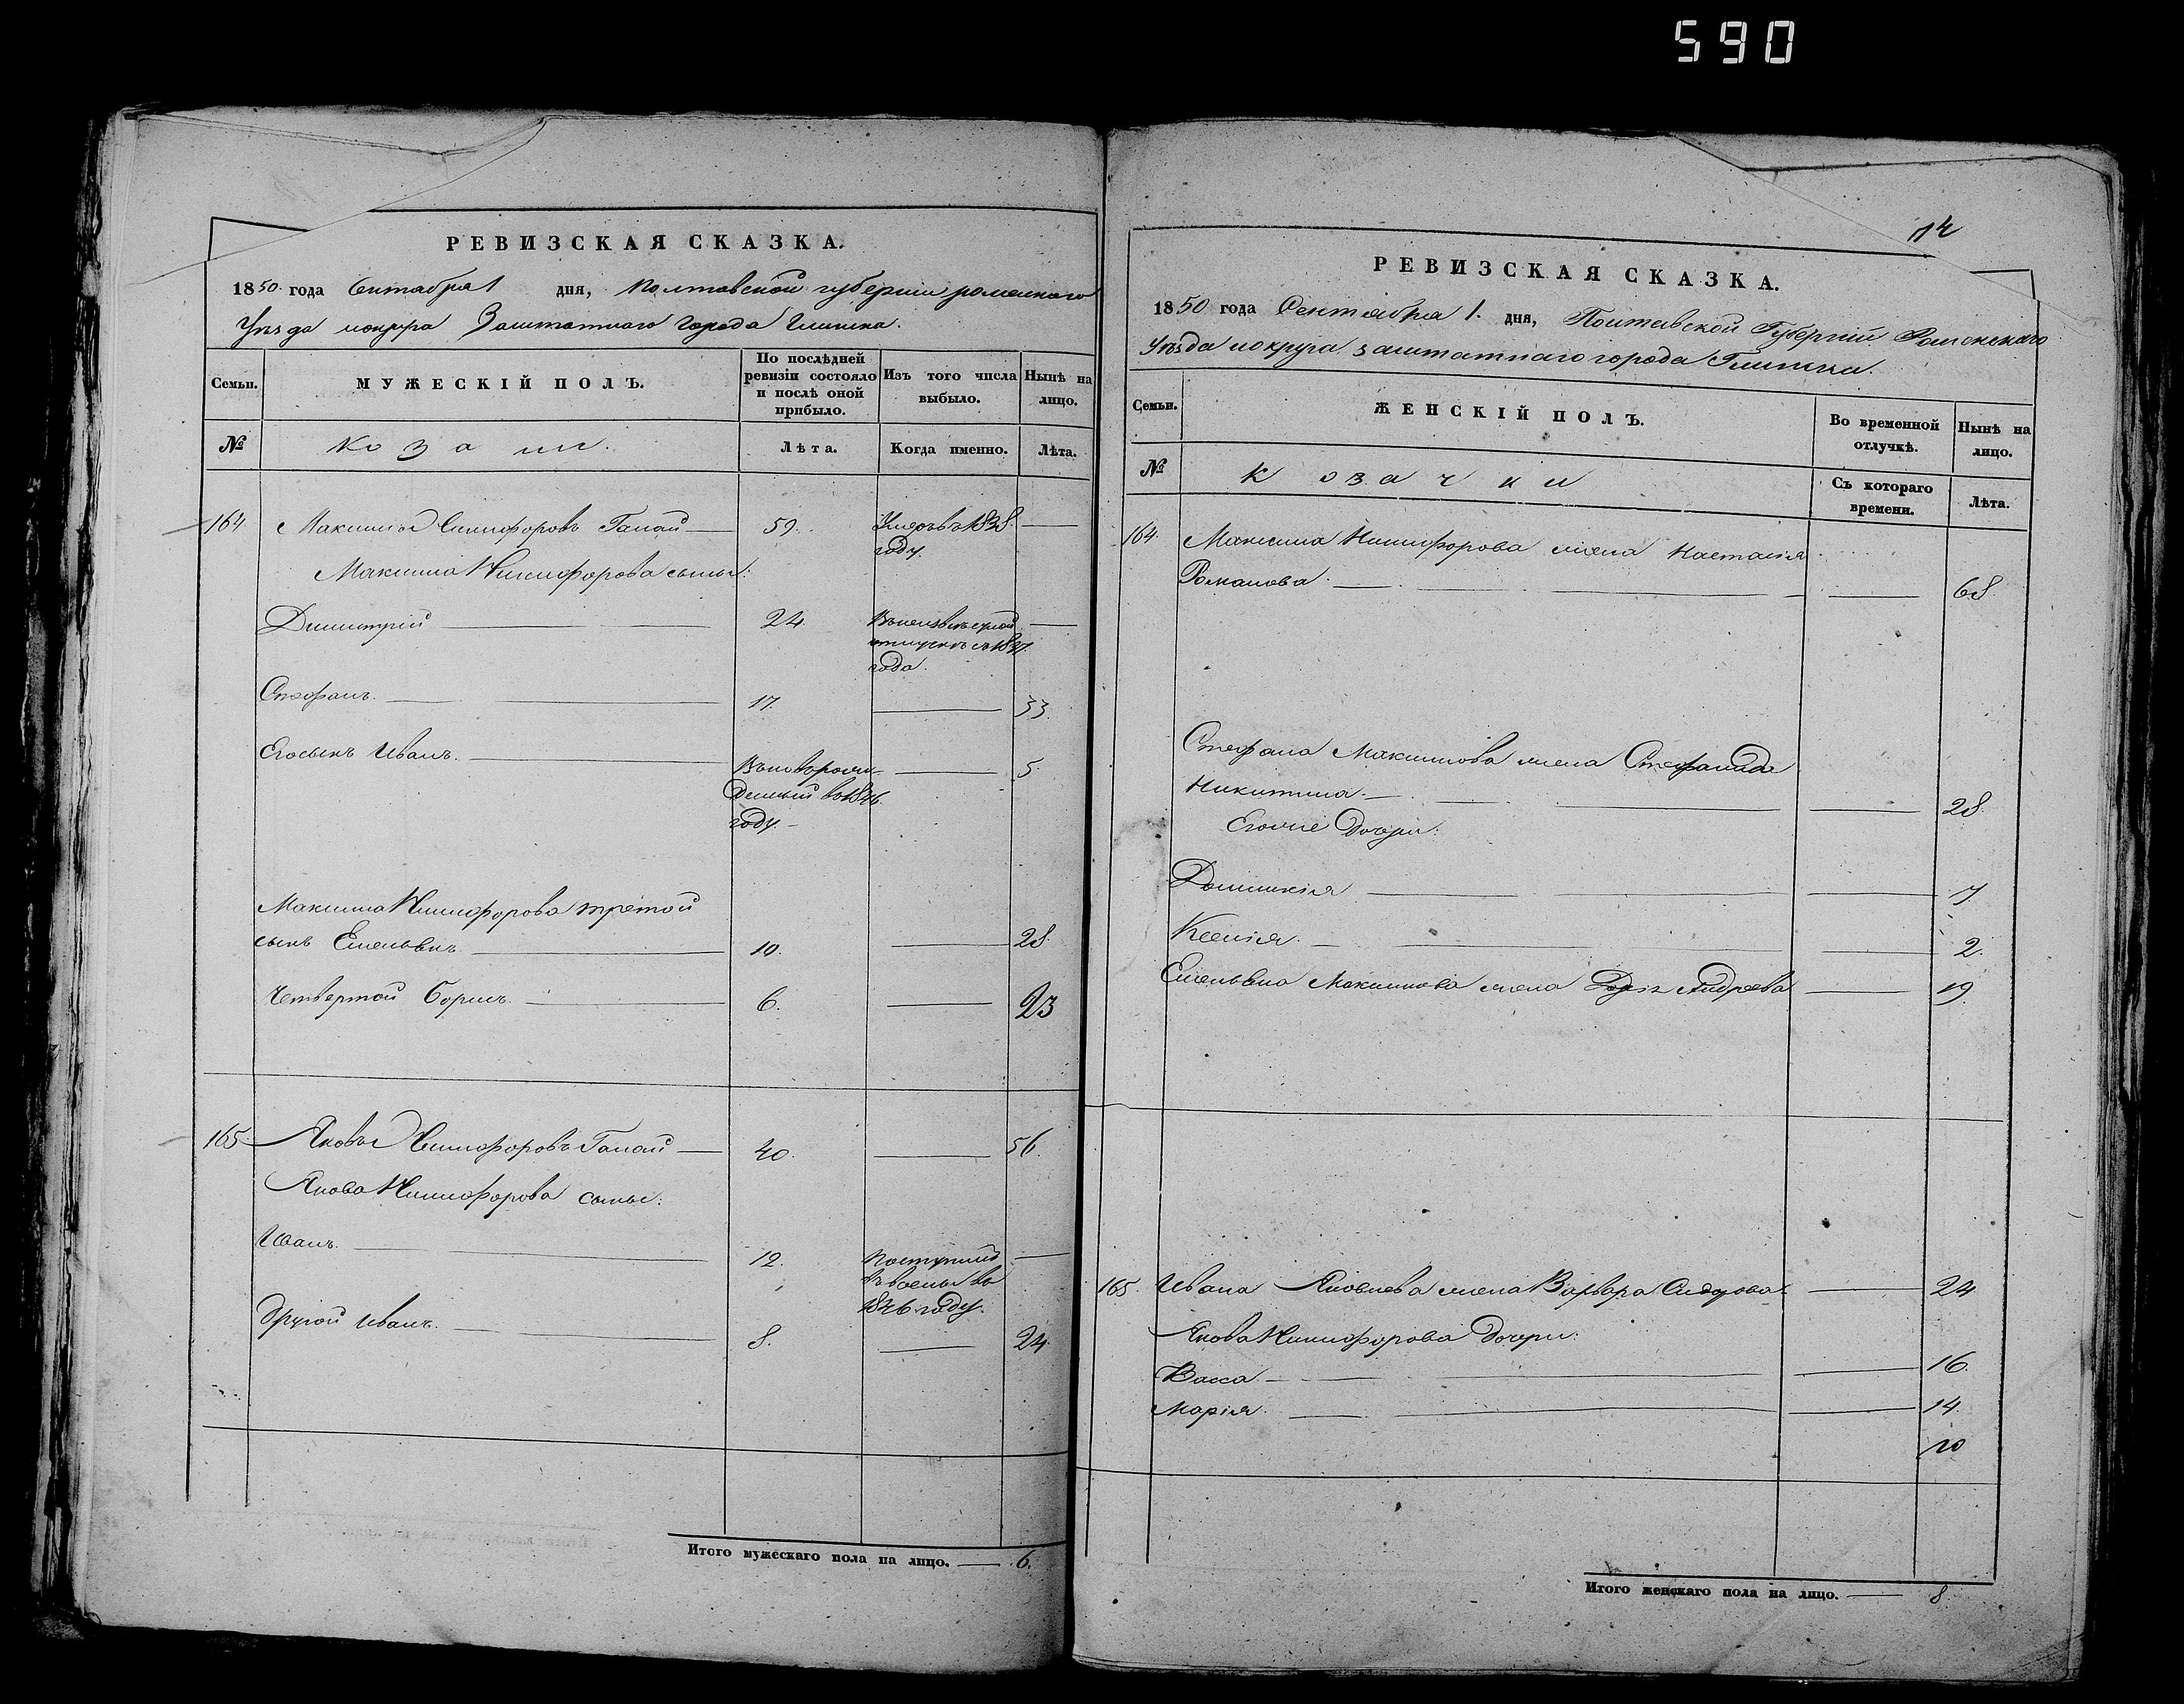 590
РЕВИЗСКАЯ СКАЗКА.
1850 года Сентября 1 дня, Полтавской губернии роменского
Уезда иокруга Заштатнаго города Глинска.
Семьи.
МУЖЕСКІЙ ПОЛЪ.
По послѣдней ревизіи состояло и послѣ оной прибыло.
Изъ того числа выбыло.
Нынѣ на лицо.
№
Козаки.
Лѣта.
Когда именно.
Лѣта.
164 Максимъ Никифоровъ Гапай 59. Умеръ въ 1838.
году.
Максима Никифорова сыны:
Димитрій 24. 
года.
Стефанъ. 17. 33.
Егосынъ Иванъ. 5.
Вновьрожденный
во 1846.
году.
Максима Никифорова третой
сынъ Емельянъ 10. 28.
Четвертой Борисъ. 6. 23
165 Яковъ Никифоровъ Гапай 40. 56.
Якова Никифорова сыны:
Иванъ. 12. Поступилъ
1846 году.
Другой Иванъ. 8. 24.
Итого мужескаго пола на лицо. 6.
РЕВИЗСКАЯ СКАЗКА.
1850 года Сентября 1. дня, Полтавской Губерніи Роменскаго
Уѣзда иокруга заштатнаго города Глинска.
Семьи.
ЖЕНСКІЙ ПОЛЪ.
Во временной отлучкѣ.
Нынѣ на лицо.
№
Козачки
Съ котораго времени.
Лѣта.
164. Максима Никифорова жена Настасія
Романова. 68.
Стефана Максимова жена Стефанида
Никитина. 28.
Егоже Дочери:
7
Ксенія. 2.
Емельяна Максимова жена Андреева 19.
165. Ивана Яковлева жена Варвара Сидорова 24
Якова Никифорова Дочери:
Васса 16.
Марія. 14.
Итого женскаго пола на лицо. 8